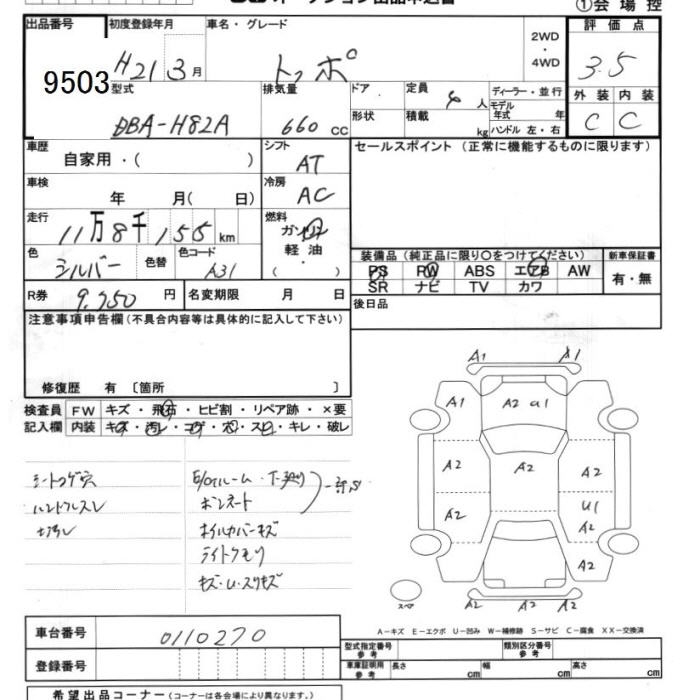 オークション出品申込書
①会場控
出品番号 9503
初度登録年月 H21 3月
車名・グレード トッポ
2WD・4WD
評価点 3.5
外装 C 内装 C
型式 DBA-H82A
排気量 660 cc
ドア・形状
定員 4人
積載 kg
ディーラー・並行
モデル年式 年式
ハンドル 左・右
車歴 自家用・( )
シフト AT
セールスポイント (正常に機能するものに限ります)
車検 年 月( 日)
冷房 AC
走行 11万8千155km
燃料 ガソリン 軽油 ( )
色 シルバー 色替
色コード A31
装備品 (純正品に限り○をつけてください)
新車保証書
PS PW ABS エアB AW
SR ナビ TV カワ
有・無
R券 9,750円
名変期限 月 日
後日品
注意事項申告欄 (不具合内容等は具体的に記入して下さい)
修復歴 有 〔箇所 〕
検査員 FW キズ・飛石・ヒビ割・リペア跡・×要
記入欄 内装 キズ・汚レ・コゲ・穴・スレ・キレ・破レ
シートコゲ穴
ハンドルスレ
土汚レ
E/Gルーム・下廻り
ボンネット
ホイルカバーキズ
ライトクモリ
キズ・U・スリキズ
A1 A1
A1 A2 U1
A2 A2 A2
A2 U1 A2
A2 A2
スペア
A2 A2 A2
A-キズ E-エクボ U-凹み W-補修跡 S-サビ C-腐食 XX-交換済
車台番号 0110270
登録番号
型式指定番号 参考
類別区分番号 参考
車庫証明用 参考 長さ cm 幅 cm 高さ cm
希望出品コーナー (コーナーは各会場により異なります。)